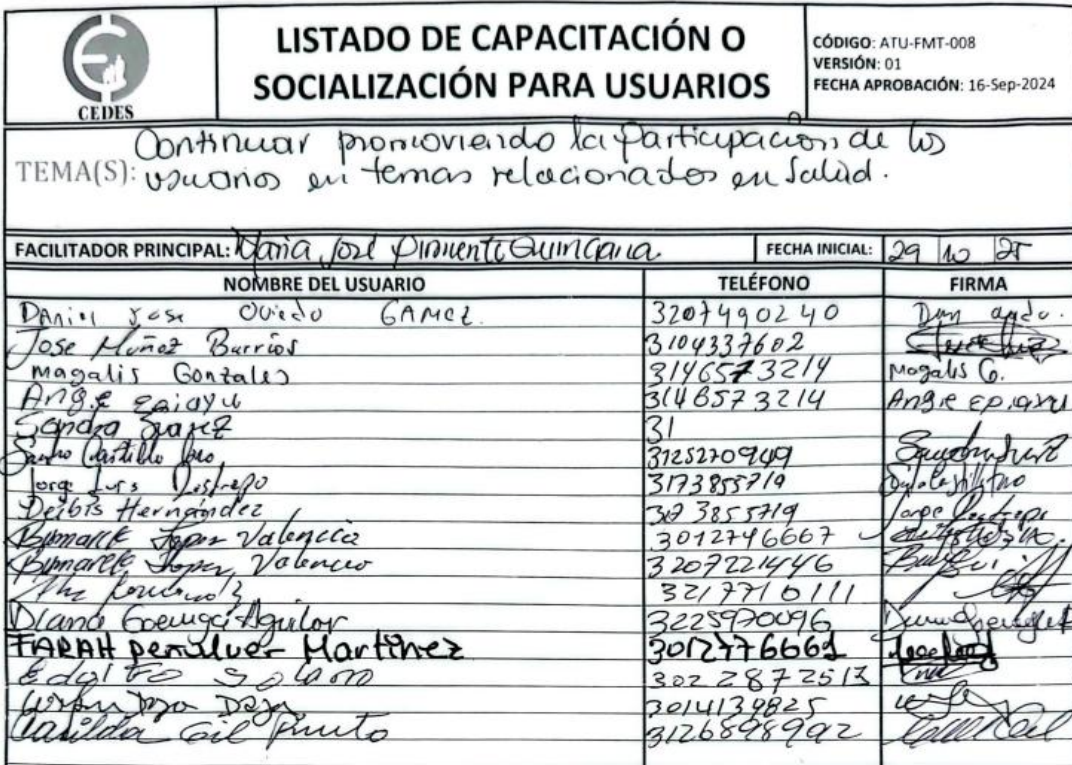 CEDES
LISTADO DE CAPACITACIÓN O
SOCIALIZACIÓN PARA USUARIOS
CÓDIGO: ATU-FMT-008
VERSIÓN: 01
FECHA APROBACIÓN: 16-Sep-2024
TEMA(S): Continuar promoviendo la participación de los
usuarios en temas relacionados en salud.
FACILITADOR PRINCIPAL: Maria José Pimienta Quintana FECHA INICIAL: 29 10 25
NOMBRE DEL USUARIO TELÉFONO FIRMA
Daniel Jose Oviedo GAMEZ. 3207490240
Jose Muñoz Barrios 3104337602
Magalis Gonzales 3146573214 Magalis G.
Angie epiayu 3146573214 Angie epiayu
Sandra Suarez 31
Castillo 3125270949
Jorge Luis Restrepo 3173855719
Deibis Hernandez 3173855719 Jorge Restrepo
Bismarck Lopez Valencia 3012746667
Bismarck Lopez Valencia 3207221446
3217710111
Diana Aguilar 3225970096
FARAH penalver Martinez 3012776661
Edgito Solano 3022872513
Daza Daza 3014139825
Casilda Gil Pinto 3126898992